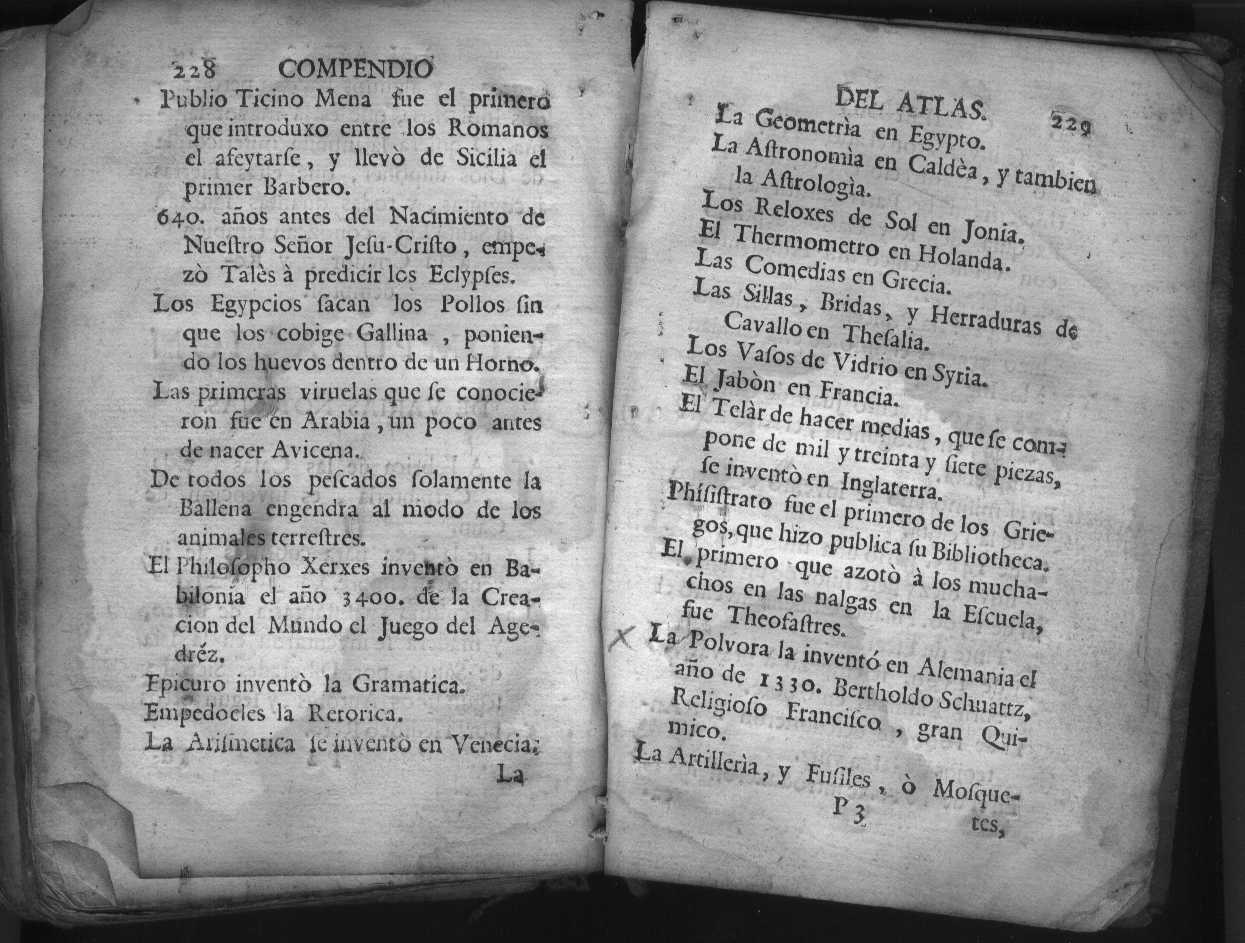 228 COMPENDIO
Publio Ticino Mena fue el primero
que introduxo entre los Romanos
el afeytarſe, y llevò de Sicilia el
primer Barbero.
640. años antes del Nacimiento de
Nueſtro Señor Jeſu-Criſto, empe-
zò Talès à predicir los Eclypſes.
Los Egypcios ſacan los Pollos ſin
que los cobige Gallina, ponien-
do los huevos dentro de un Horno.
Las primeras viruelas que ſe conocie-
ron fue en Arabia, un poco antes
de nacer Avicena.
De todos los peſcados ſolamente la
Ballena engendra al modo de los
animales terreſtres.
El Philoſopho Xerxes inventò en Ba-
bilonia el año 3400. de la Crea-
cion del Mundo el Juego del Age-
dréz.
Epicuro inventò la Gramatica.
Empedocles la Retorica.
La Ariſmetica ſe inventò en Venecia.
La
DEL ATLAS. 229
La Geometrìa en Egypto.
La Aſtronomìa en Caldèa, y tambien
la Aſtrologìa.
Los Reloxes de Sol en Jonia.
El Thermometro en Holanda.
Las Comedias en Grecia.
Las Sillas, Bridas, y Herraduras de
Cavallo en Theſalia.
Los Vaſos de Vidrio en Syria.
El Jabòn en Francia.
El Telàr de hacer medias, que ſe com-
pone de mil y treinta y ſiete piezas,
ſe inventò en Inglaterra.
Phíſiſtrato fue el primero de los Grie-
gos, que hizo publica ſu Bibliotheca.
El primero que azotò à los mucha-
chos en las nalgas en la Eſcuela,
fue Theofaſtres.
La Polvora la inventó en Alemania el
año de 1330. Bertholdo Schuattz,
Religioſo Franciſco, gran Qui-
mico.
La Artillerìa, y Fuſiles, ò Moſque-
P 3 tes,